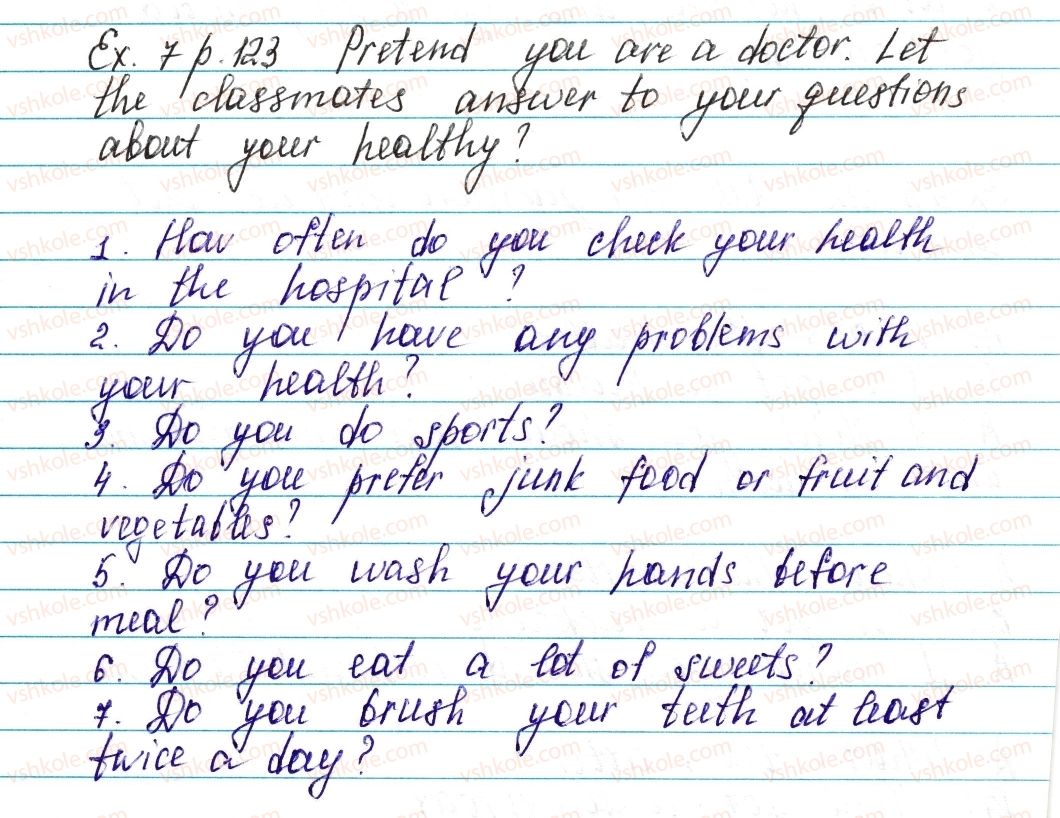 Ex. 7 p. 123 Pretend you are a doctor. Let
the classmates answer to your questions
about your healthy?
1. How often do you check your health
in the hospital?
2. Do you have any problems with
your health?
3. Do you do sports?
4. Do you prefer junk food or fruit and
vegetables?
5. Do you wash your hands before
meal?
6. Do you eat a lot of sweets?
7. Do you brush your teeth at least
twice a day?
vshkole.com